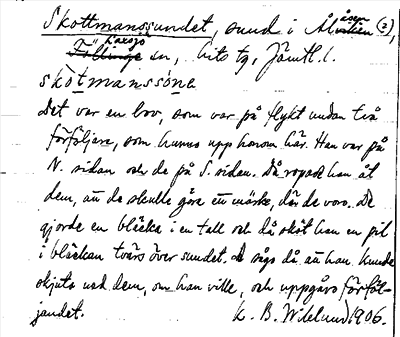 Skottmanssundet, sund i Åltsjön (2),
Laxsjö
Föllinge sn, Lits tg, Jämtl. l.
skòtmanssòne
Det var en bov, som var på flykt undan två
förföljare, som hunno upp honom här. Han var på
N. sidan och de på S. sidan. Då ropade han åt
dem, att de skulle göra ett märke, där de voro. De
gjorde en bläcka i en tall och då sköt han en pil
i bläckan tvärs över sundet. De sågo då att han kunde
skjuta ned dem, om han ville, och uppgåvo förföl-
jandet. K. B. Wiklund. 1906.